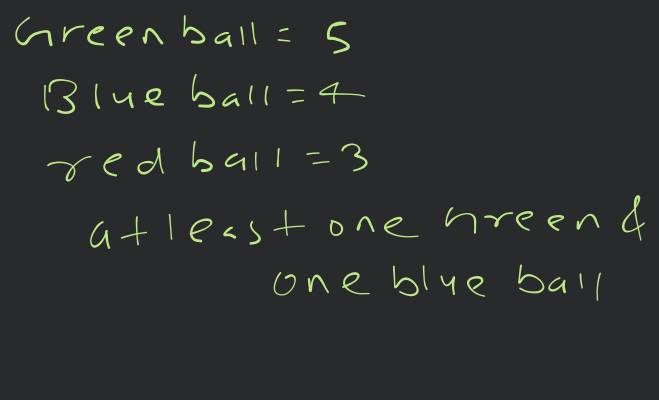 Green ball = 5
Blue ball = 4
red ball = 3
atleast one Green &
one blue ball